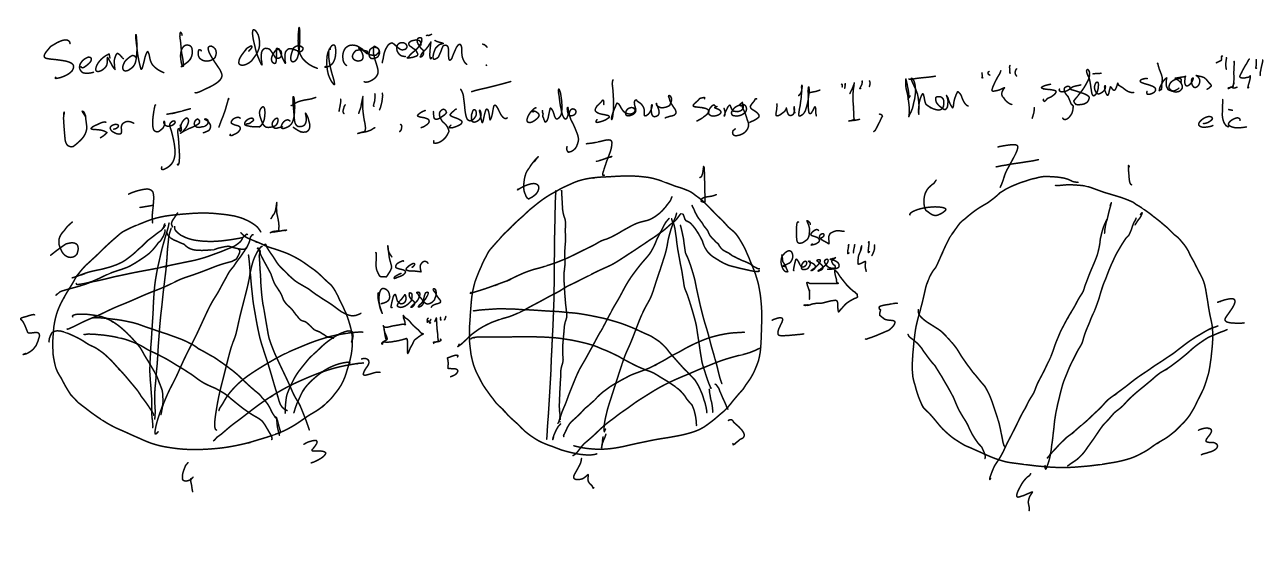 Search by chord progression:
User types/selects "1", system only shows songs with "1", then "4", system shows "14"
etc
7
1
6
5
2
3
4
User
Presses
"1"
7
6
1
5
2
3
4
User
Presses "4"
7
1
6
5
2
3
4